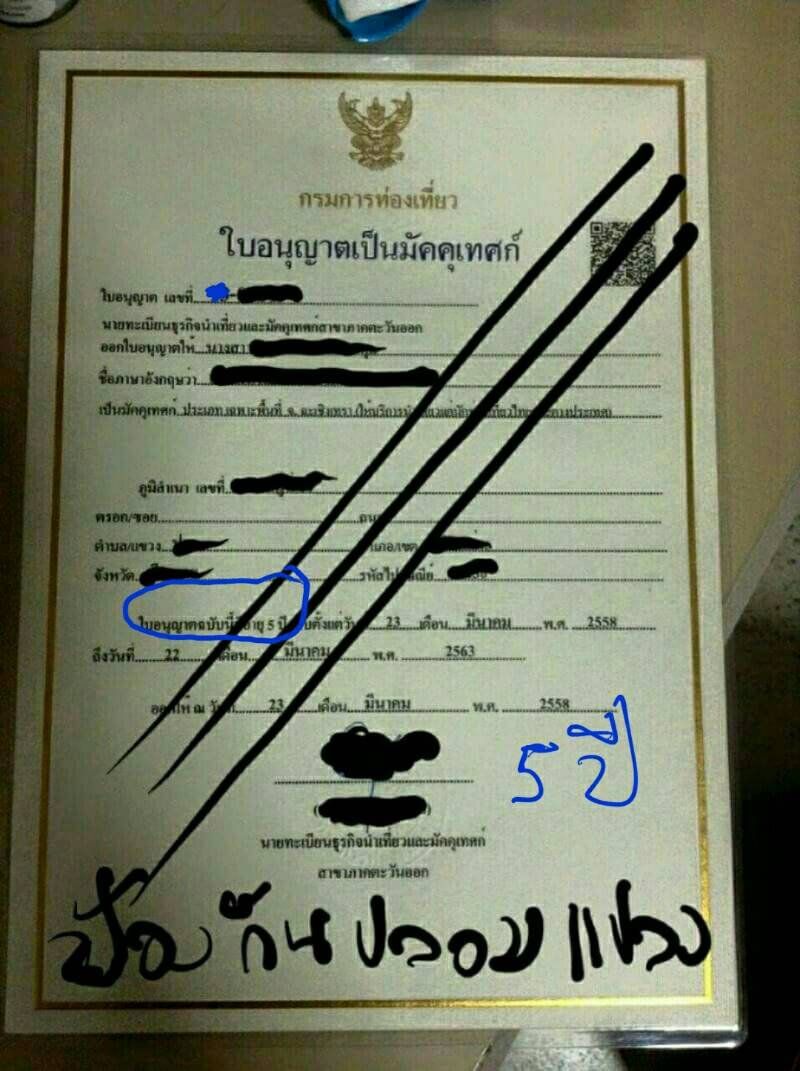 กรมการท่องเที่ยว
ใบอนุญาตเป็นมัคคุเทศก์
ใบอนุญาต เลขที่
นายทะเบียนธุรกิจนำเที่ยวและมัคคุเทศก์สาขาภาคตะวันออก
ออกใบอนุญาตให้ นางสาว
ชื่อภาษาอังกฤษว่า
เป็นมัคคุเทศก์ ประเภท เฉพาะพื้นที่ จ. ฉะเชิงเทรา
ภูมิลำเนา เลขที่
ตรอก/ซอย ถนน
ตำบล/แขวง อำเภอ/เขต
จังหวัด รหัสไปรษณีย์
ใบอนุญาตฉบับนี้มีอายุ 5 ปี นับตั้งแต่วันที่ 23 เดือน มีนาคม พ.ศ. 2558
ถึงวันที่ 22 เดือน มีนาคม พ.ศ. 2563
ออกให้ ณ วันที่ 23 เดือน มีนาคม พ.ศ. 2558
5 ปี
นายทะเบียนธุรกิจนำเที่ยวและมัคคุเทศก์
สาขาภาคตะวันออก
ป้องกันปลอมแปลง